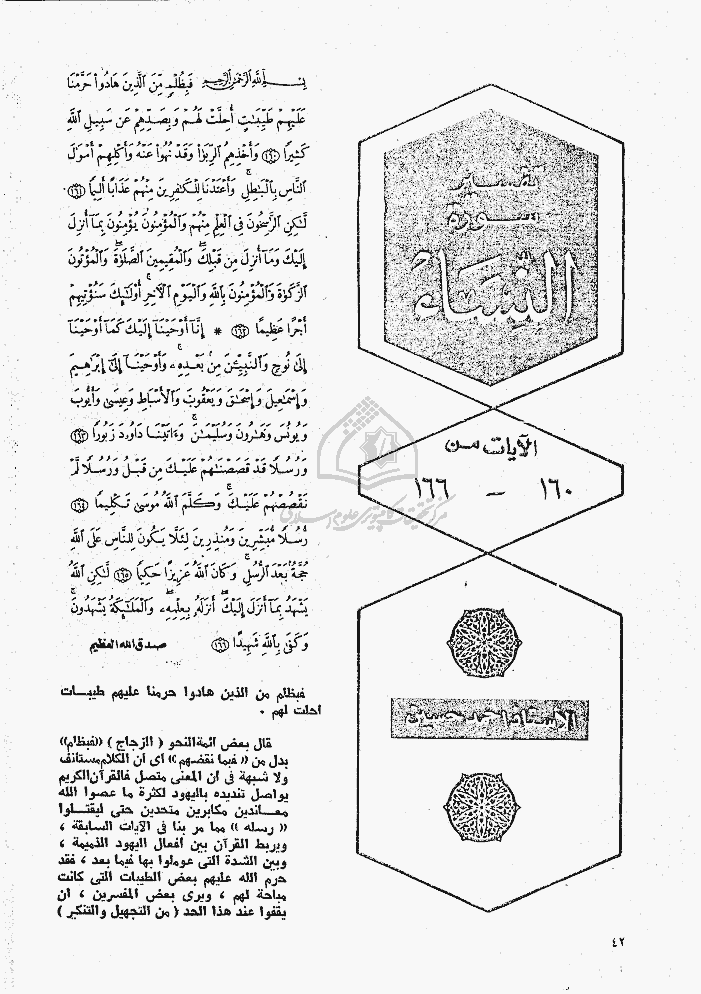 تفسير
سورة
النِّسَاءُ
الآيات من
١٦٠ — ١٦٦
الأستاذ أحمد حسين
بِسْمِ ٱللَّهِ ٱلرَّحْمَٰنِ ٱلرَّحِيمِ فَبِظُلْمٍ مِّنَ ٱلَّذِينَ هَادُوا۟ حَرَّمْنَا
عَلَيْهِمْ طَيِّبَٰتٍ أُحِلَّتْ لَهُمْ وَبِصَدِّهِمْ عَن سَبِيلِ ٱللَّهِ
كَثِيرًا ﴿١٦٠﴾ وَأَخْذِهِمُ ٱلرِّبَوٰا۟ وَقَدْ نُهُوا۟ عَنْهُ وَأَكْلِهِمْ أَمْوَٰلَ
ٱلنَّاسِ بِٱلْبَٰطِلِ ۚ وَأَعْتَدْنَا لِلْكَٰفِرِينَ مِنْهُمْ عَذَابًا أَلِيمًا ﴿١٦١﴾
لَّٰكِنِ ٱلرَّٰسِخُونَ فِى ٱلْعِلْمِ مِنْهُمْ وَٱلْمُؤْمِنُونَ يُؤْمِنُونَ بِمَآ أُنزِلَ
إِلَيْكَ وَمَآ أُنزِلَ مِن قَبْلِكَ ۚ وَٱلْمُقِيمِينَ ٱلصَّلَوٰةَ ۚ وَٱلْمُؤْتُونَ
ٱلزَّكَوٰةَ وَٱلْمُؤْمِنُونَ بِٱللَّهِ وَٱلْيَوْمِ ٱلْءَاخِرِ أُو۟لَٰٓئِكَ سَنُؤْتِيهِمْ
أَجْرًا عَظِيمًا ﴿١٦٢﴾ * إِنَّآ أَوْحَيْنَآ إِلَيْكَ كَمَآ أَوْحَيْنَآ
إِلَىٰ نُوحٍ وَٱلنَّبِيِّـۧنَ مِنۢ بَعْدِهِۦ ۚ وَأَوْحَيْنَآ إِلَىٰٓ إِبْرَٰهِيمَ
وَإِسْمَٰعِيلَ وَإِسْحَٰقَ وَيَعْقُوبَ وَٱلْأَسْبَاطِ وَعِيسَىٰ وَأَيُّوبَ
وَيُونُسَ وَهَٰرُونَ وَسُلَيْمَٰنَ ۚ وَءَاتَيْنَا دَاوُۥدَ زَبُورًا ﴿١٦٣﴾
وَرُسُلًا قَدْ قَصَصْنَٰهُمْ عَلَيْكَ مِن قَبْلُ وَرُسُلًا لَّمْ
نَقْصُصْهُمْ عَلَيْكَ ۚ وَكَلَّمَ ٱللَّهُ مُوسَىٰ تَكْلِيمًا ﴿١٦٤﴾
رُّسُلًا مُّبَشِّرِينَ وَمُنذِرِينَ لِئَلَّا يَكُونَ لِلنَّاسِ عَلَى ٱللَّهِ
حُجَّةٌۢ بَعْدَ ٱلرُّسُلِ ۚ وَكَانَ ٱللَّهُ عَزِيزًا حَكِيمًا ﴿١٦٥﴾ لَّٰكِنِ ٱللَّهُ
يَشْهَدُ بِمَآ أَنزَلَ إِلَيْكَ ۖ أَنزَلَهُۥ بِعِلْمِهِۦ ۖ وَٱلْمَلَٰٓئِكَةُ يَشْهَدُونَ ۚ
وَكَفَىٰ بِٱللَّهِ شَهِيدًا ﴿١٦٦﴾ صدق الله العظيم
فبظلم من الذين هادوا حرمنا عليهم طيبات
احلت لهم .
قال بعض ائمة النحو ( الزجاج ) « فبظلم »
بدل من « فبما نقضهم » أى أن الكلام مستانف
ولا شبهة فى أن المعنى متصل فالقرآن الكريم
يواصل تنديده باليهود لكثرة ما عصوا الله
معاندين مكابرين متحدين حتى ليقتلوا
« رسله » مما مر بنا فى الآيات السابقة ،
ويربط القرآن بين أفعال اليهود الذميمة ،
وبين الشدة التى عوملوا بها فيما بعد ، فقد
حرم الله عليهم بعض الطيبات التى كانت
مباحة لهم ، ويرى بعض المفسرين ، أن
يقفوا عند هذا الحد ( من التجهيل والتنكير )
٤٢
مرکز تحقیقات کامپیوتری علوم اسلامی